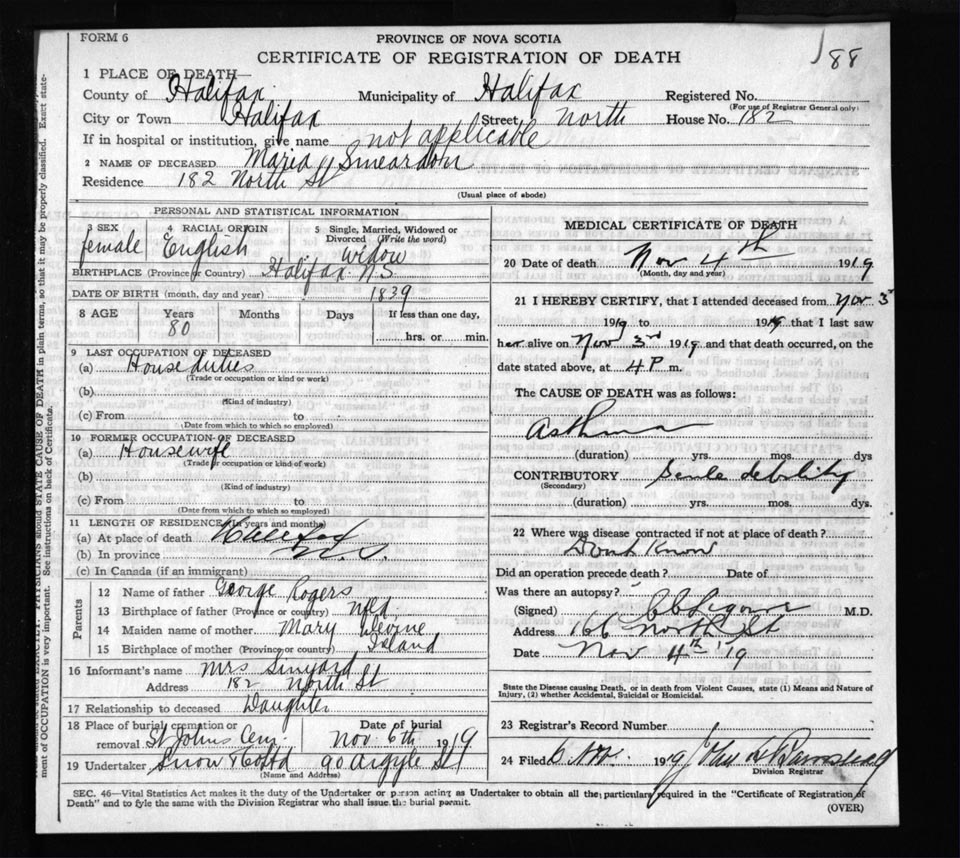 FORM 6
PROVINCE OF NOVA SCOTIA
CERTIFICATE OF REGISTRATION OF DEATH
88
1 PLACE OF DEATH—
County of Halifax Municipality of Halifax Registered No.
(For use of Registrar General only)
City or Town Halifax Street North House No. 182
If in hospital or institution, give name not applicable
2 NAME OF DECEASED Maria Smeardon
Residence 182 North St
(Usual place of abode)
PERSONAL AND STATISTICAL INFORMATION
3 SEX female
4 RACIAL ORIGIN English
5 Single, Married, Widowed or Divorced (Write the word) Widow
BIRTHPLACE (Province or Country) Halifax NS
DATE OF BIRTH (month, day and year) 1839
8 AGE Years 80 Months Days If less than one day, hrs. or min.
9 LAST OCCUPATION OF DECEASED
(a) House duties
(Trade or occupation or kind or work)
(b)
(Kind of industry)
(c) From to
(Date from which to which so employed)
10 FORMER OCCUPATION OF DECEASED
(a) Housewife
(Trade or occupation or kind of work)
(b)
(Kind of industry)
(c) From to
(Date from which to which so employed)
11 LENGTH OF RESIDENCE (in years and months)
(a) At place of death Halifax
(b) In province N.S.
(c) In Canada (if an immigrant)
Parents
12 Name of father George Rogers
13 Birthplace of father (Province or country) Nfld.
14 Maiden name of mother Mary Devine
15 Birthplace of mother (Province or country) Island
16 Informant's name Mrs Sinyard
Address 182 North St
17 Relationship to deceased Daughter
18 Place of burial cremation or removal St Johns Cem. Date of burial Nov 6th 1919
19 Undertaker Snow & Co Ltd 90 Argyle St
(Name and Address)
MEDICAL CERTIFICATE OF DEATH
20 Date of death Nov 4th 1919
(Month, day and year)
21 I HEREBY CERTIFY, that I attended deceased from Nov 3rd
1919 to 1919 that I last saw
her alive on Nov 3rd 1919 and that death occurred, on the
date stated above, at 4 P m.
The CAUSE OF DEATH was as follows:
Asthma
(duration) yrs. mos. dys
CONTRIBUTORY Senile debility
(Secondary)
(duration) yrs. mos. dys.
22 Where was disease contracted if not at place of death?
Dont Know
Did an operation precede death? Date of
Was there an autopsy?
(Signed) M.D.
Address 166 North St
Date Nov 4th '19
State the Disease causing Death, or in death from Violent Causes, state (1) Means and Nature of Injury, (2) whether Accidental, Suicidal or Homicidal.
23 Registrar's Record Number
24 Filed 6 Nov. 1919
Division Registrar
SEC. 46—Vital Statistics Act makes it the duty of the Undertaker or person acting as Undertaker to obtain all the particulars required in the "Certificate of Registration of
Death" and to fyle the same with the Division Registrar who shall issue the burial permit.
(OVER)